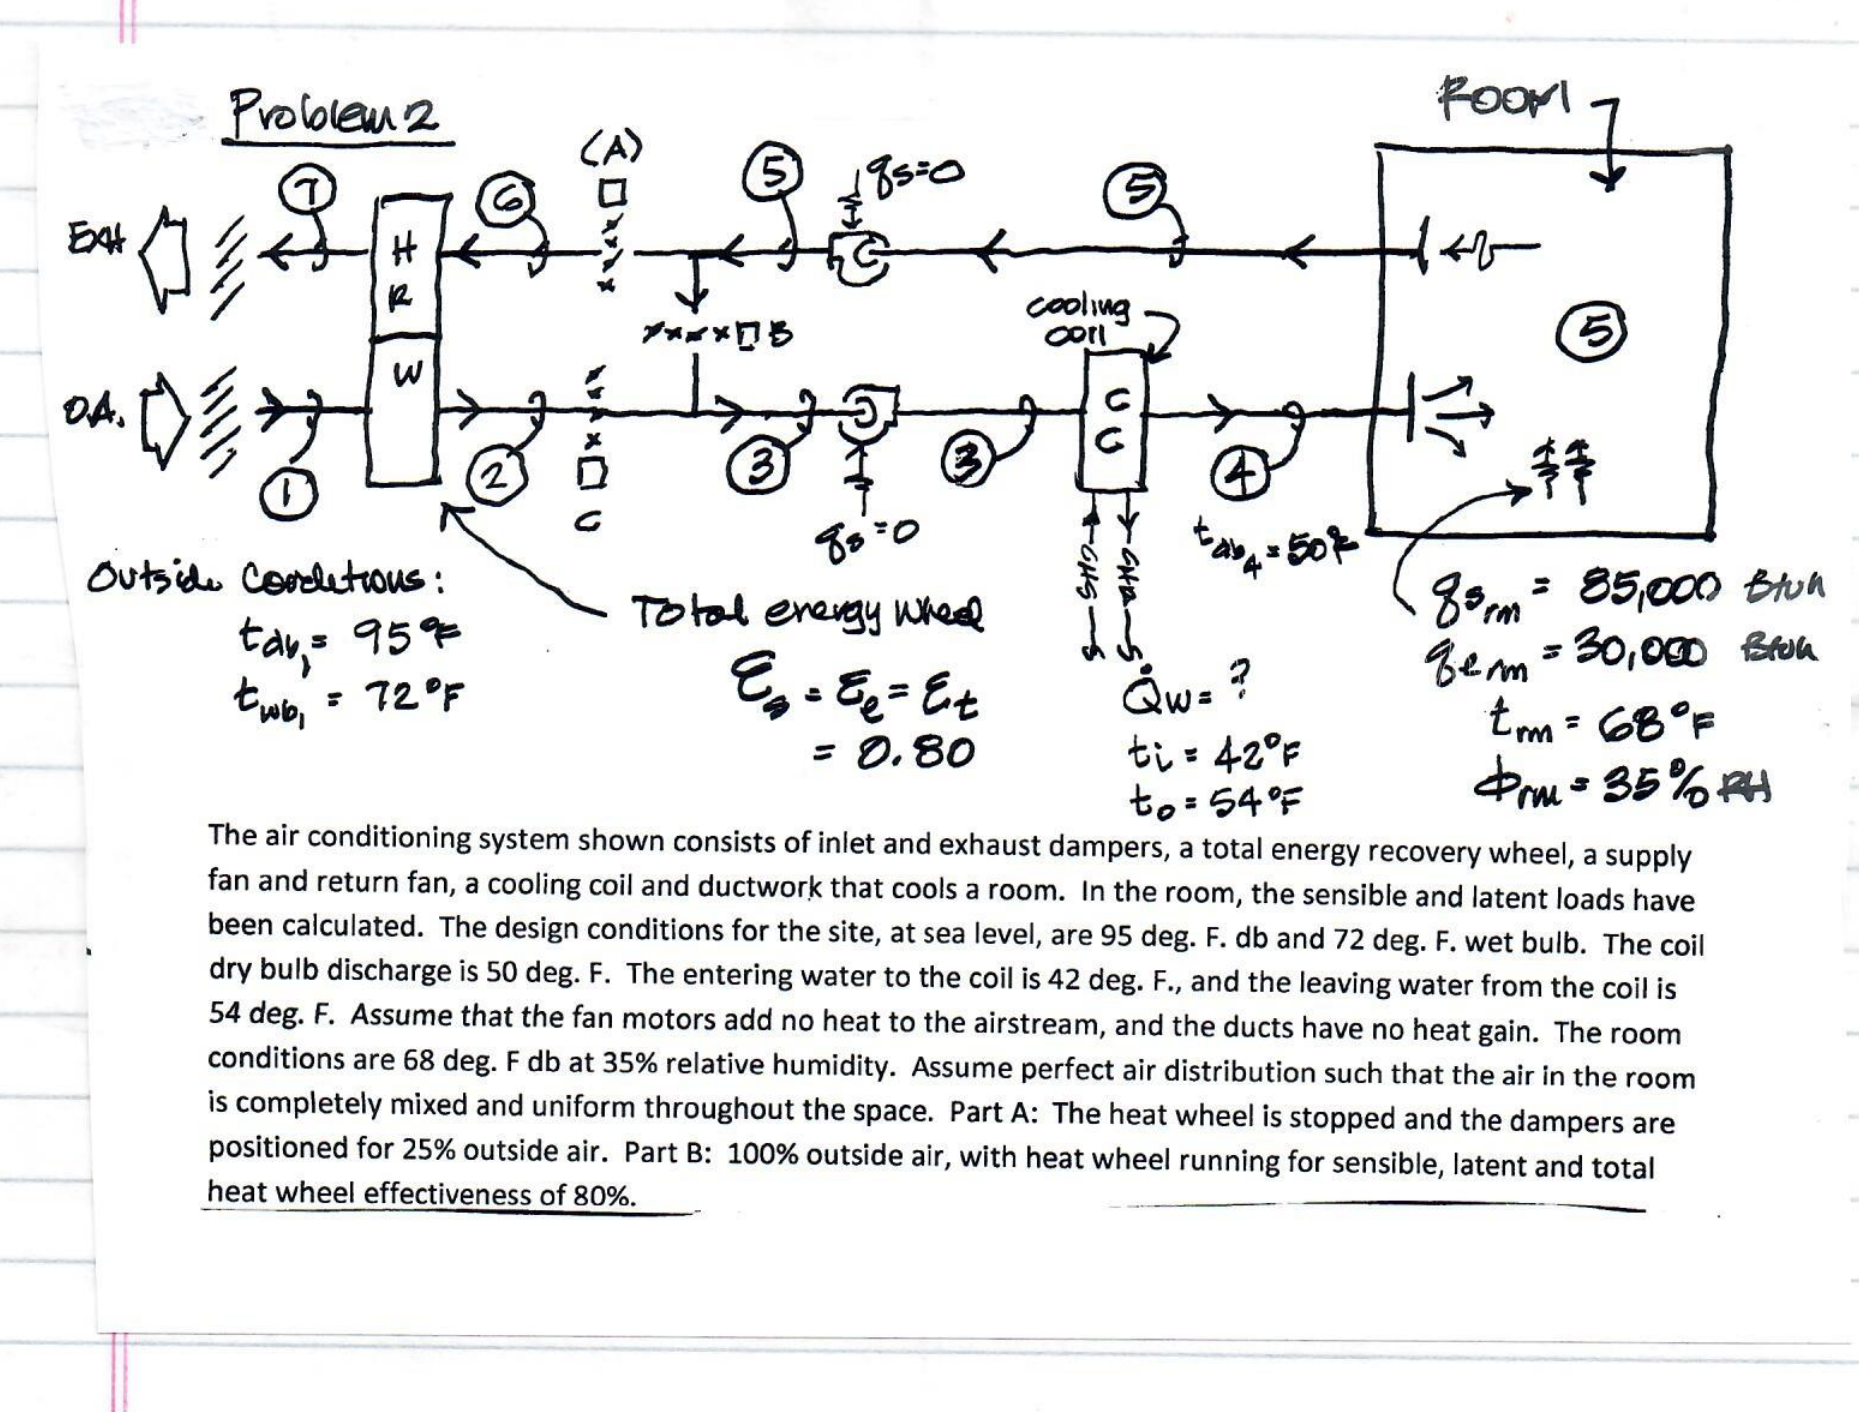 Problem 2
ROOM
(A)
7
6
5
qs=0
5
EXH
H
R
W
B
cooling
coil
5
O.A.
C
C
1
2
C
3
qs=0
3
4
tdb4 = 50°F
CHS
CHR
Outside Conditions:
tdb1 = 95°F
twb1 = 72°F
Total energy wheel
Es = Ee = Et
= 0.80
Q̇w = ?
ti = 42°F
to = 54°F
qsrm = 85,000 Btuh
qerm = 30,000 Btuh
trm = 68°F
Φrm = 35% RH
The air conditioning system shown consists of inlet and exhaust dampers, a total energy recovery wheel, a supply
fan and return fan, a cooling coil and ductwork that cools a room. In the room, the sensible and latent loads have
been calculated. The design conditions for the site, at sea level, are 95 deg. F. db and 72 deg. F. wet bulb. The coil
dry bulb discharge is 50 deg. F. The entering water to the coil is 42 deg. F., and the leaving water from the coil is
54 deg. F. Assume that the fan motors add no heat to the airstream, and the ducts have no heat gain. The room
conditions are 68 deg. F db at 35% relative humidity. Assume perfect air distribution such that the air in the room
is completely mixed and uniform throughout the space. Part A: The heat wheel is stopped and the dampers are
positioned for 25% outside air. Part B: 100% outside air, with heat wheel running for sensible, latent and total
heat wheel effectiveness of 80%.